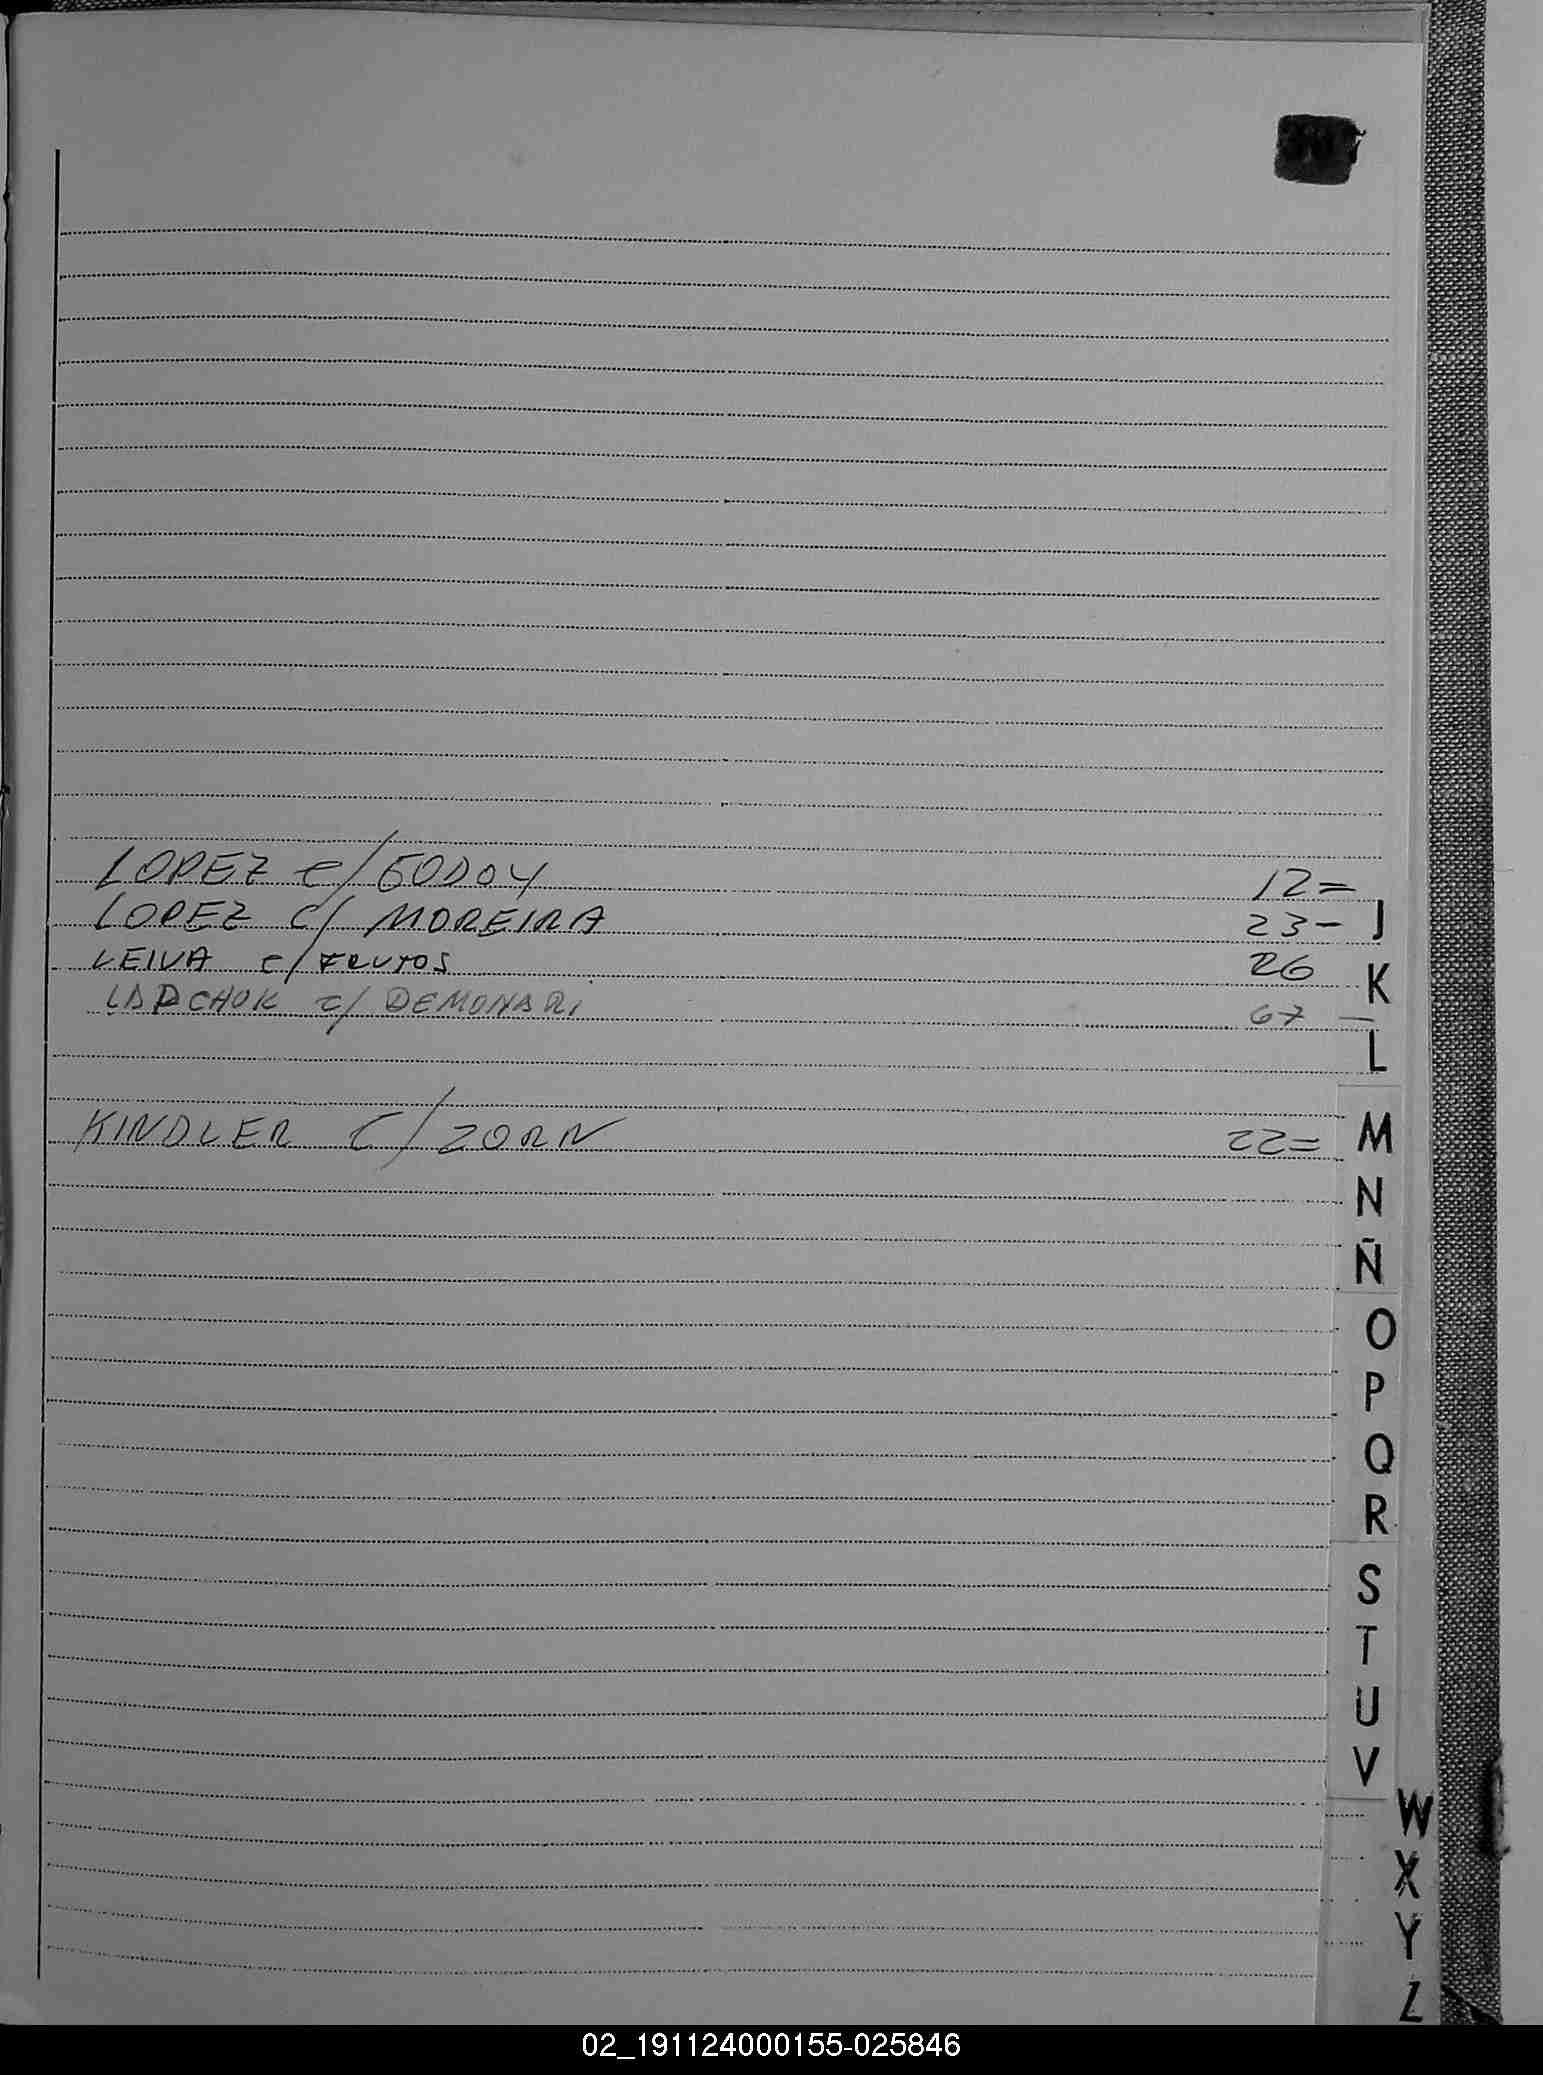 LOPEZ c/ GODOY 12=
LOPEZ c/ MOREIRA 23-
LEIVA c/ FRUTOS 26
LAPCHUK c/ DEMONARI 67 —
KINDLER c/ ZORN 22=
J
K
L
M
N
Ñ
O
P
Q
R
S
T
U
V
W
X
Y
Z
02_191124000155-025846